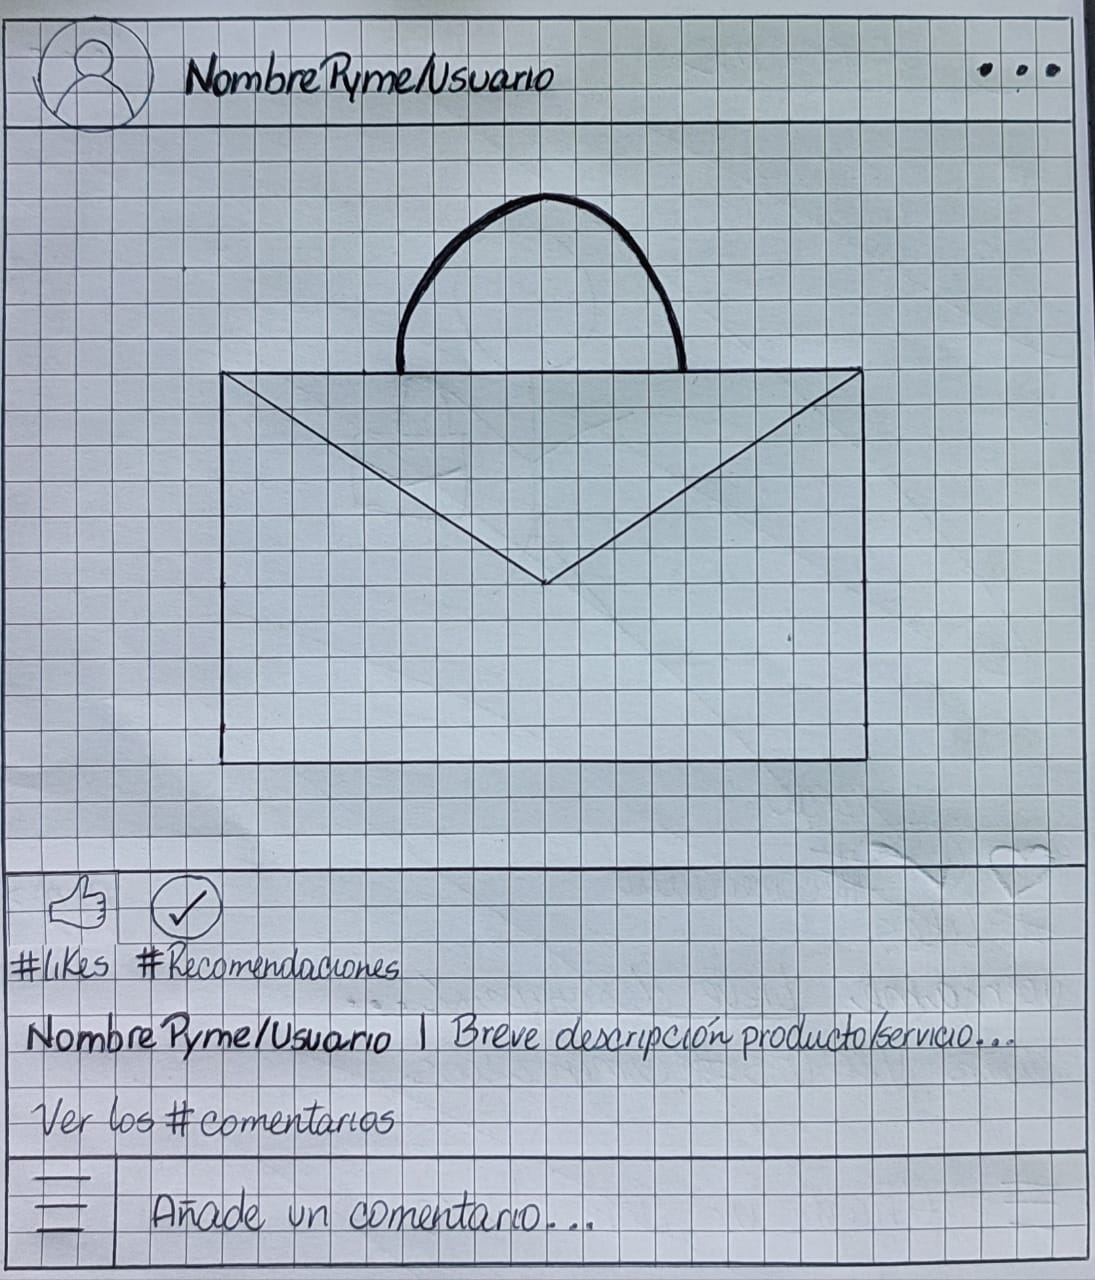 Nombre Pyme/Usuario ...
#Likes #Recomendaciones
Nombre Pyme/Usuario | Breve descripción producto/servicio...
Ver los #comentarios
Añade un comentario...